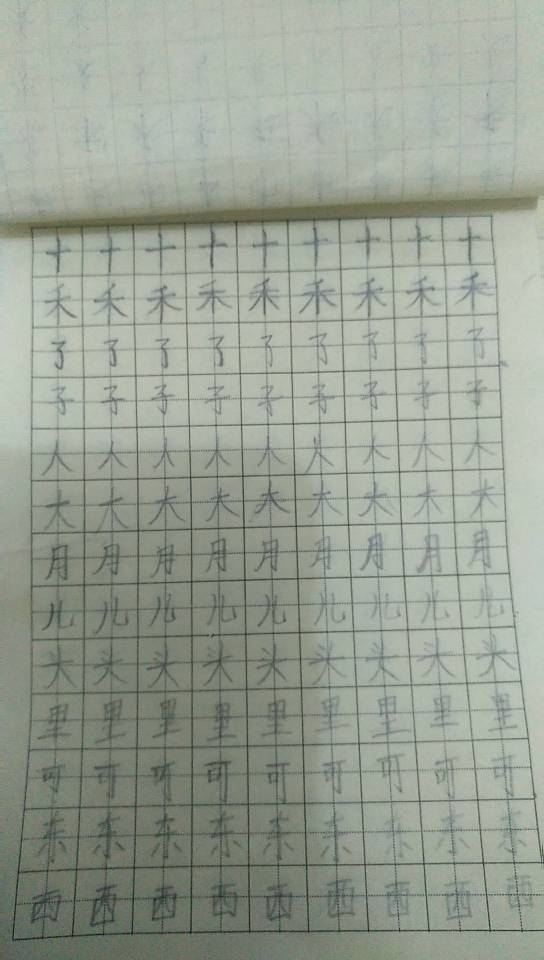 十十十十十十十十十
禾禾禾禾禾禾禾禾禾
了了了了了了了了了
子子子子子子子子子
人人人人人人人人人
大大大大大大大大大
月月月月月月月月月
儿儿儿儿儿儿儿儿儿
头头头头头头头头头
里里里里里里里里里
可可可可可可可可可
东东东东东东东东东
西西西西西西西西西